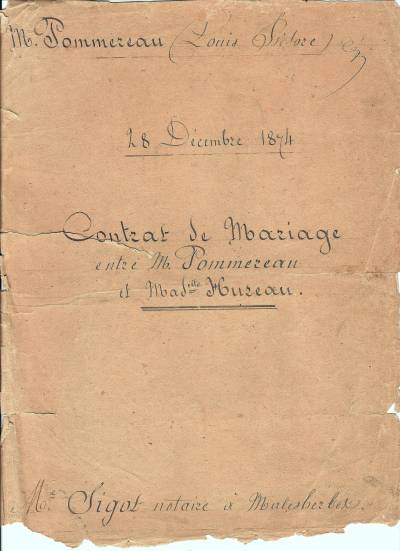 M. Pommereau (Louis Isidore)
28 Décembre 1874
Contrat de Mariage
entre M. Pommereau
et Mad^elle Hureau.
M^e Sigot notaire à Malesherbes.